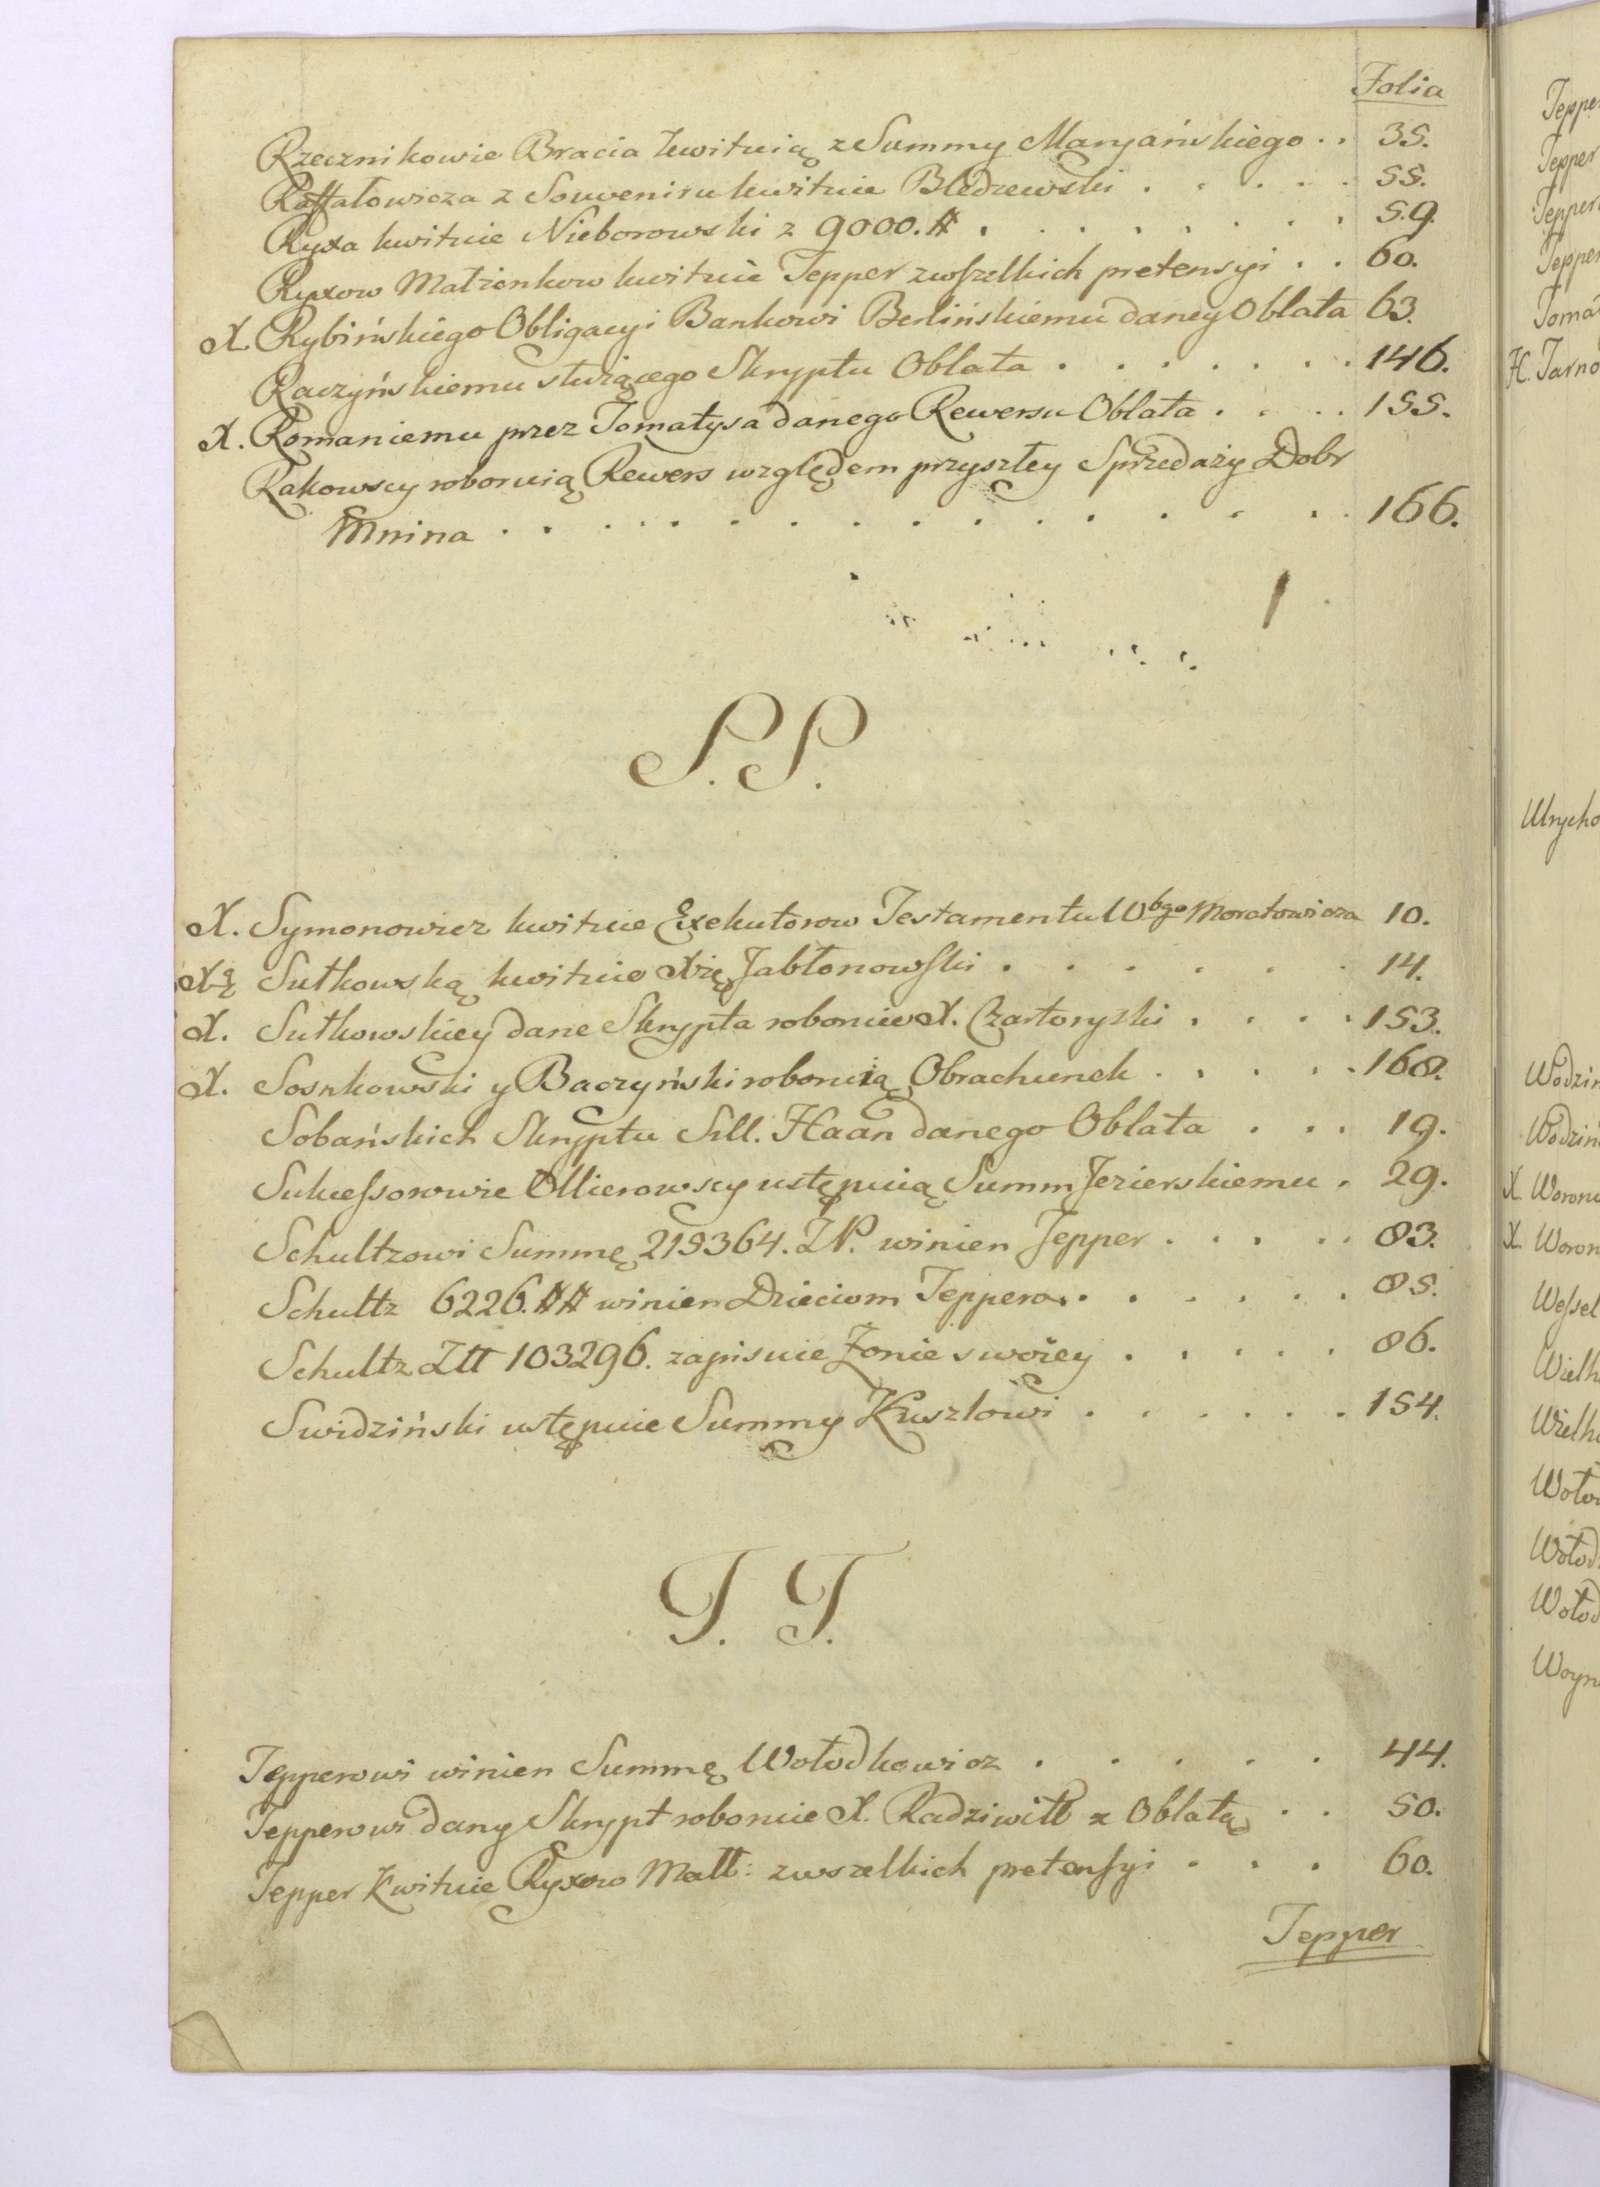 Folia
Rzecznikowie Bracia kwituią z Summy Maryańskiego . . 35.
Raffałowicza z Souveniru kwituie Bledzewski . . . . . 55.
Ryxa kwituie Nieborowski z 9000. # . . . . . . . 59.
Ryxow Małżonkow kwituie Tepper zwszelkich pretensyi . . 60.
X. Rybińskiego Obligacyi Bankowi Berlińskiemu daney Oblata 63.
Raczyńskiemu służącego Skryptu Oblata . . . . . . 146.
X. Romaniemu przez Tomatysa danego Rewersu Oblata . . . 155.
Rakowscy roboruią Rewers względem przyszłey Sprzedaży Dobr
Mnina . . . . . . . . . . . . . . 166.
S. S.
X. Symonowicz kwituie Exekutorow Testamentu Wbgo Moratowicza 10.
X-ę Sułkowską kwituie Xżę Jabłonowski . . . . . . 14.
X. Sułkowskiey dane Skrypta roboruie X. Czartoryski . . . . 153.
X. Sosnkowski y Baczyński roboruią Obrachunek . . . . . 168.
Sobańskich Skryptu Sill. Haan danego Oblata . . . 19.
Sukcessorowie Ollierowscy ustępuią Summ Jezierskiemu . 29.
Schultzowi Summę 219364. ZP. winien Tepper . . . . . 83.
Schultz 6226. ## winien Dzieciom Teppera . . . . . . 85.
Schultz Ztt 103296. zapisuie Żonie swoiey . . . . . 86.
Swidziński ustępuie Summy Kuszlowi . . . . . . 154.
T. T.
Tepperowi winien Summę Wołodkowicz . . . . . 44.
Tepperowi dany Skrypt roboruie X. Radziwiłł z Oblatą . . 50.
Tepper Kwituie Ryxow Małł: zwszelkich pretensyi . . . 60.
Tepper
Tepper
Tepper
Wołod